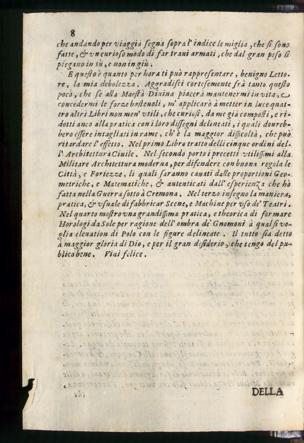 8
che andando per viaggio segna sopra l'indice le miglia, che si sono
fatte, & un curioso modo di far travi armati, che dal gran peso si
piegano in sù, e non in giù.
E questo è quanto per hora ti può rappresentare, benigno Letto-
re, la mia debolezza. Aggradisci cortesemente frà tanto questo
poco, che se alla Maestà Divina piacerà mantenermi in vita, e
concedermi le forze bastevoli, m'applicarò à metter in luce quat-
tro altri Libri non men' utili, che curiosi, da me già composti, e ri-
dotti anco alla pratica con i loro dissegni delineati, i quali dovreb-
bero essere intagliati in rame, ch'è la maggior difficoltà, che può
ritardare l'effetto. Nel primo Libro tratto delli cinque ordini del-
l'Architettura Civile. Nel secondo porto i precetti utilissimi alla
Militare Architettura moderna, per difendere con buone regole le
Città, e Fortezze, li quali saranno cavati dalle proportioni Geo-
metriche, e Matematiche, & autenticati dall'esperienza che hò
fatto nella Guerra sotto à Cremona. Nel terzo insegno la maniera,
pratica, & usuale di fabbricar Scene, e Machine per uso de' Teatri.
Nel quarto mostro una grandissima pratica, e theorica di formare
Horologi da Sole per ragione dell'ombra de' Gnomoni à qualsivo-
glia elevation di Polo con le figure delineate. Il tutto sia detto
à maggior gloria di Dio, e per il gran desiderio, che tengo del pu-
blico bene. Vivi felice.
DELLA